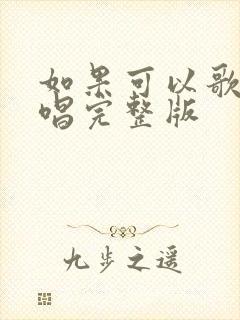 如果可以歌
唱完整版
九步之遥